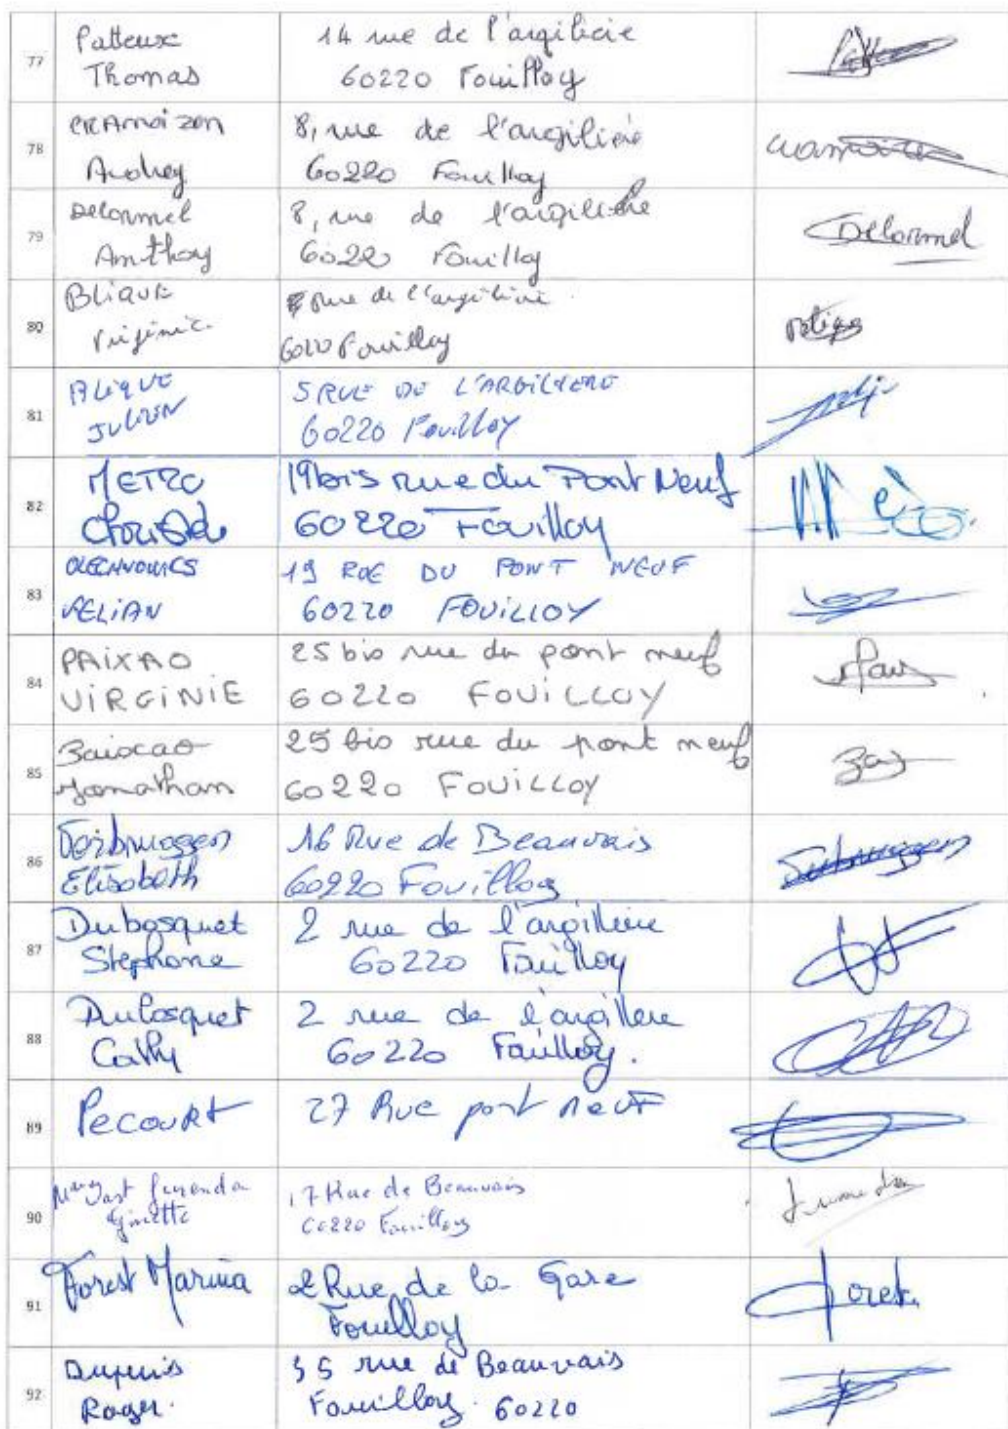 77
Patteux
Thomas
14 rue de l'argilicie
60220 Fouilloy
78
CRAmoizon
Audrey
8, rue de l'argilière
60220 Fouilloy
79
Delormel
Anthony
8, rue de l'argilière
60220 Fouilloy
Delormel
80
BLIQUE
Virginie
rue de l'argilière
60220 Fouilloy
81
BLIQUE
JULIEN
5 RUE DE L'ARGILIERE
60220 Fouilloy
82
METRO
19bis rue du Pont Neuf
60220 Fouilloy
83
19 RUE DU PONT NEUF
60220 FOUILLOY
84
PAIXAO
VIRGINIE
25 bis rue du pont neuf
60220 FOUILLOY
85
Jonathan
25 bis rue du pont neuf
60220 FOUILLOY
86
Terbruggen
Elisabeth
16 Rue de Beauvais
60220 Fouilloy
87
Dubosquet
Stephane
2 rue de l'argilliere
60220 Fouilloy
88
Dubosquet
Cathy
2 rue de l'argillere
60220 Fouilloy.
89
Pecourt
27 Rue pont neuf
90
Ginette
17 Rue de Beauvais
60220 Fouilloy
91
Forest Marina
2 Rue de la Gare
Fouilloy
92
Dupuis
Roger.
35 rue de Beauvais
Fouilloy. 60220